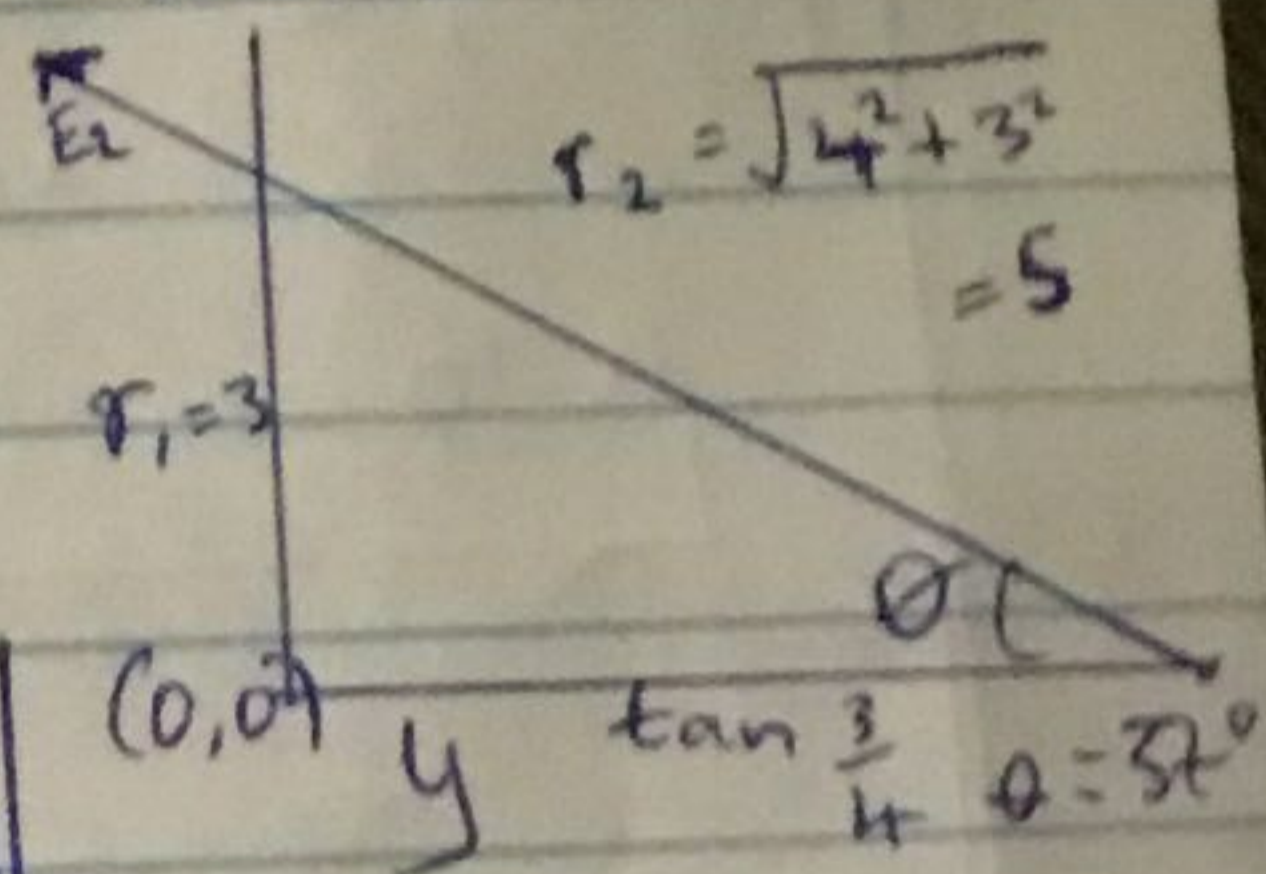 E₂
r₂ = √4² + 3²
= 5
r₁ = 3
θ
(0,0)
4
tan 3/4 θ = 37°